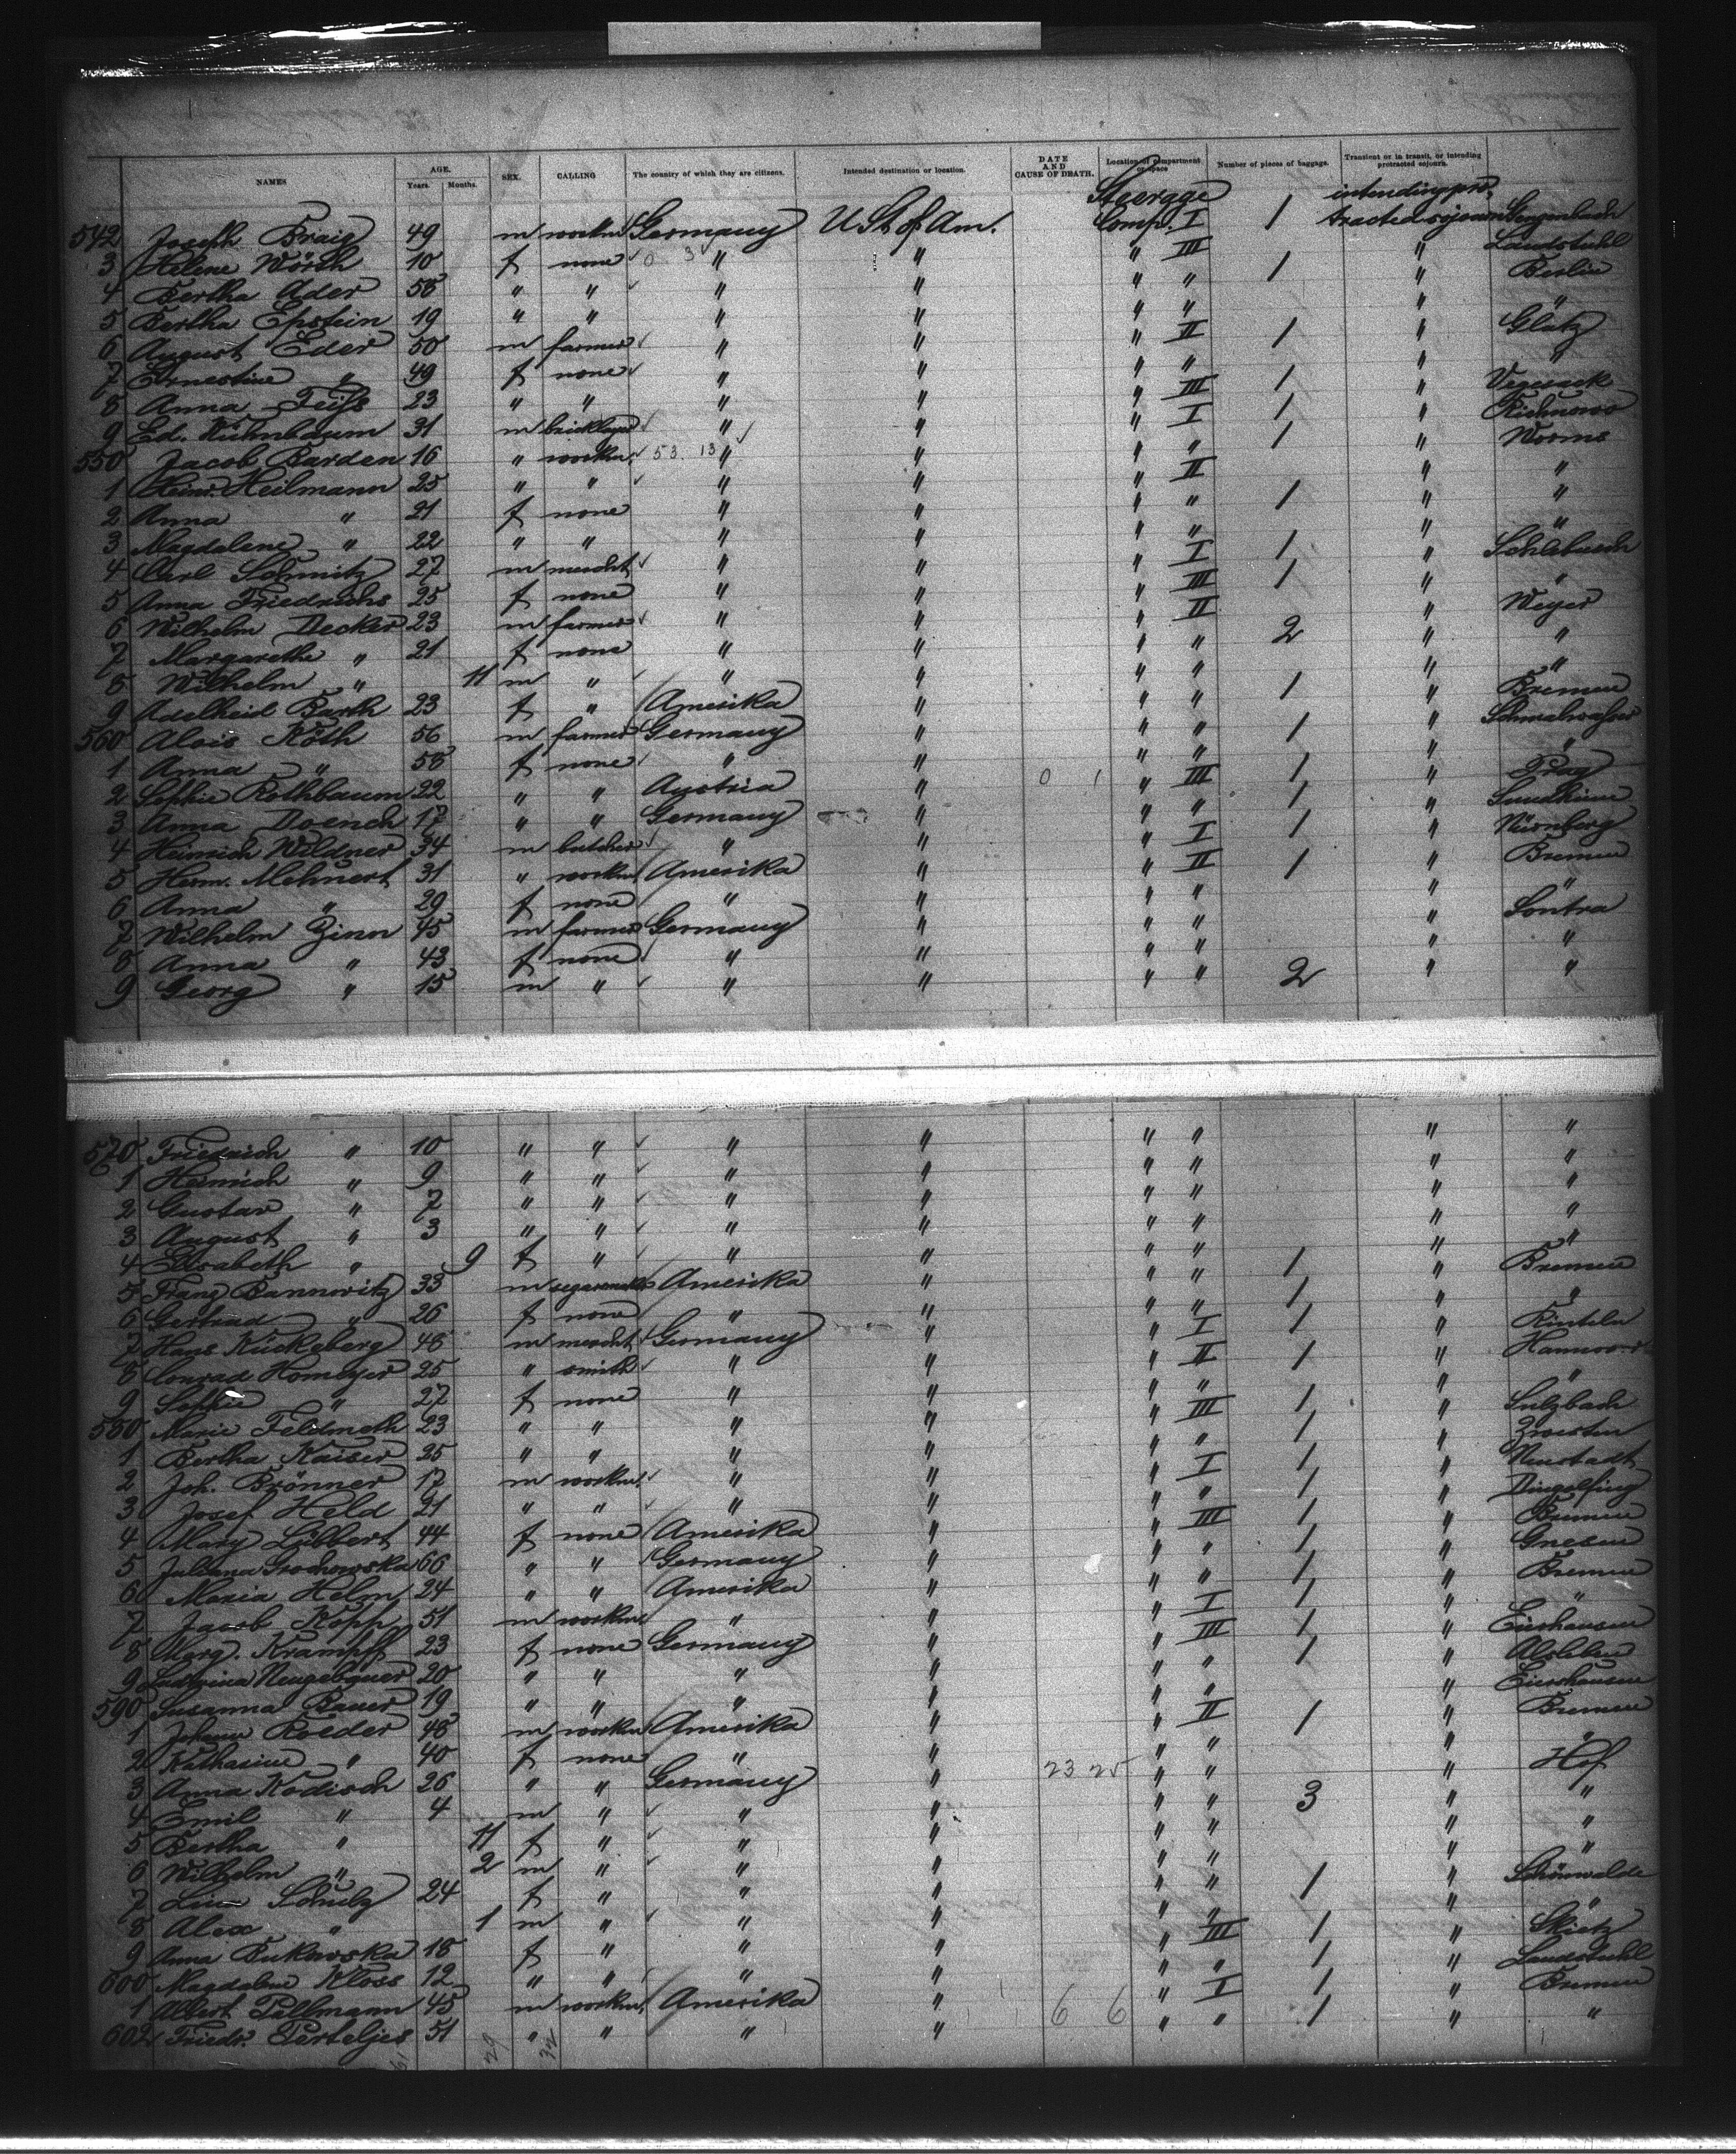 NAMES AGE. Years. Months. SEX. CALLING The country of which they are citizens. Intended destination or location. DATE AND CAUSE OF DEATH. Location of compartment or space Number of pieces of baggage. Transient or in transit, or intending protracted sojourn.
542 Joseph Braig 49 m workm Germany U St. of Am. Steerage Comp. I 1 intending protracted sojourn Gengenbach
3 Helene Wörth 10 f none 0 3 " " " III " Landstuhl
4 Bertha Ader 58 " " " " " " 1 " Berlin
5 Bertha Epstein 19 " " " " " " " "
6 August Eder 50 m farmer " " " II 1 " Glatz
7 Ernestine " 49 f none " " " " " "
8 Anna Feifs 23 " " " " " III 1 " Vegesack
9 Ed. Kühnbaum 31 m bricklayer " " " I 1 "
550 Jacob Barden 16 " workm. 53. 13 " " " " 1 " Worms
1 Heinr. Heilmann 25 " " " " " II " "
2 Anna " 21 f none " " " " 1 " "
3 Magdalene " 22 " " " " " " " "
4 Carl Schmitz 27 m mercht " " " I 1 " Schlebusch
5 Anna Friedrichs 25 f none " " " III 1 " "
6 Wilhelm Decker 23 m farmer " " " II " Weyer
7 Margarethe " 21 f none " " " " 2 " "
8 Wilhelm " 11 m " " " " " " "
9 Adelheid Barth 23 f " Amerika " " " 1 " Bremen
560 Alois Köth 56 m farmer Germany " " " 1 "
1 Anna " 58 f none " " " " " "
2 Sophie Rothbaum 22 " " Austria " 0 1 " III 1 " Prag
3 Anna Doench 17 " " Germany " " " 1 "
4 Heinrich Wildner 34 m butcher " " " I 1 " Nürnberg
5 Herm. Mehnert 31 " workm. Amerika " " II 1 " Bremen
6 Anna " 29 f none " " " " " "
7 Wilhelm Zinn 45 m farmer Germany " " " " Sontra
8 Anna " 43 f none " " " " " "
9 Georg " 15 m " " " " " 2 " "
570 Friedrich " 10 " " " " " " " "
1 Heinrich " 9 " " " " " " " "
2 Gustav " 7 " " " " " " " "
3 August " 3 " " " " " " " "
4 Elisabeth " 9 f " " " " " " "
5 Franz Bannowitz 33 m Amerika " " " 1 " Bremen
6 Gertrud " 26 f none " " " " 1 " "
7 Hans Kückeberg 48 m mercht Germany " " I 1 " Rinteln
8 Conrad Homeyer 25 " smith " " " II 1 " Hannover
9 Sophie " 27 f none " " " " " "
580 Marie Feldmeth 23 " " " " " III 1 " Sulzbach
1 Bertha Kaiser 25 " " " " " " 1 " Zwesten
2 Joh. Brönner 17 m workm. " " " I 1 " Neustadt
3 Josef Held 21 " " " " " " 1 " Dingelfing
4 Mary Lübbert 44 f none Amerika " " III 1 " Bremen
5 Juliana Grochowska 66 " " Germany " " " 1 " Gnesen
6 Maria Helm 24 " " Amerika " " " 1 " Bremen
7 Jacob Kopp 51 m workm " " " I 1 " "
8 Marg. Krampff 23 f none Germany " " III 1 "
9 Ludwina Neugebauer 20 " " " " " " 1 " Alsleben
590 Susanna Bauer 19 " " " " " " "
1 Johann Roeder 48 m workm Amerika " " II 1 " Bremen
2 Katharine " 40 f none " " " " " "
3 Anna Kodisch 26 " " Germany " 23 25 " " " Hof
4 Emil " 4 m " " " " " 3 " "
5 Bertha " 11 f " " " " " " "
6 Wilhelm " 2 m " " " " " " "
7 Lina Schulz 24 f " " " " " 1 " Schönwalde
8 Alex " 1 m " " " " " " "
9 Anna Bukowska 18 f " " " " III 1 "
600 Magdalene Kloss 12 " " " " " " 1 " Landstuhl
1 Albert Pellmann 45 m workm. Amerika " 6 6 " I 1 " Bremen
602 Friedr. Perteljes 51 " " " " " " 1 " "